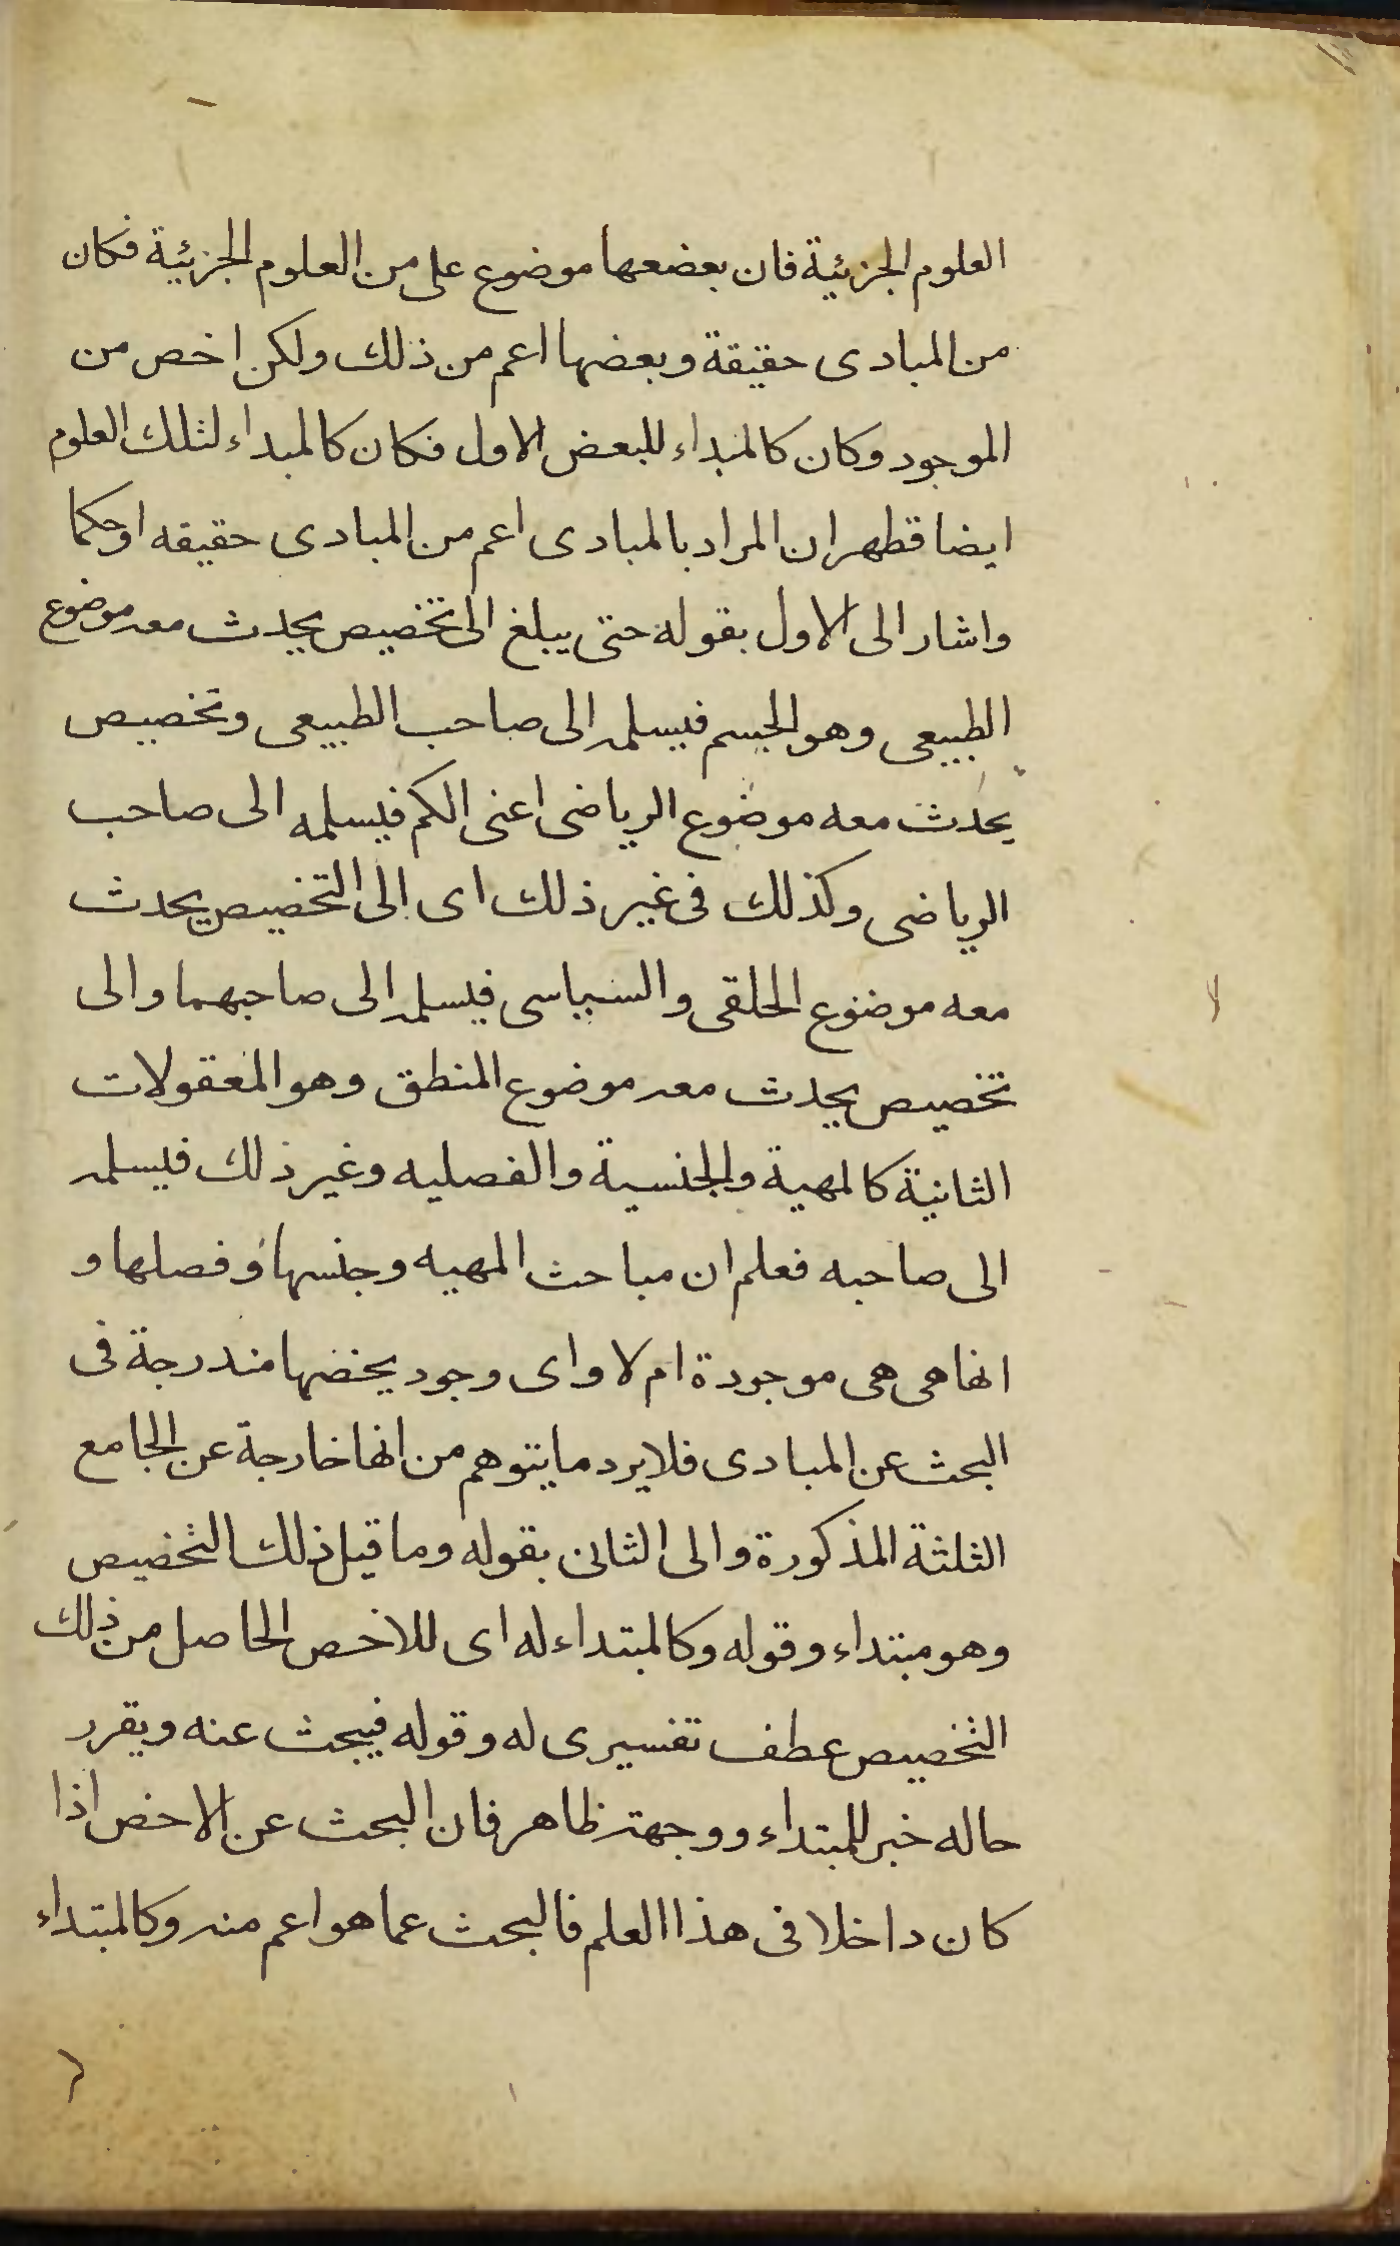 العلوم الجزئية فان بعضعها موضوع على من العلوم الجزئية فكان
من المبادى حقيقة وبعضها اعم من ذلك ولكن اخص من
الموجود وكان كالمبداء للبعض الاول فكان كالمبداء لثلك العلوم
ايضا قطهر ان المراد بالمبادى اعم من المبادى حقيقه او حكما
واشار الى الاول بقوله حتى يبلغ الى تخصيص يحدث معه موضوع
الطبيعى وهو الجسم فيسلمه الى صاحب الطبيعى وتخصيص
يحدث معه موضوع الرياضى اعنى الكم فيسلمه الى صاحب
الرياضى وكذلك فى غير ذلك اى الى التخصيص يحدث
معه موضوع الخلقى والسياسى فيسلمه الى صاحبهما والى
تخصيص يحدث معه موضوع المنطق وهو المعقولات
الثانية كالمهية والجنسية والفصليه وغير ذلك فيسلمه
الى صاحبه فعلم ان مباحث المهيه وجنسها وفصلها و
انها هى هى موجودة ام لا واى وجود يخضها مندرجة فى
البحث عن المبادى فلا يرد ما يتوهم من انها خارجة عن الجامع
الثلثة المذكورة والى الثانى بقوله وما قيل ذلك التخصيص
وهو مبتداء وقوله وكالمبتداء له اى للاخص الحاصل من ذلك
التخصيص عطف تفسيرى له وقوله فيبحث عنه ويقرر
حاله خبر للمبتداء ووجهه ظاهر فان البحث عن الاخص اذا
كان داخلا فى هذا العلم فالبحث عما هو اعم منه وكالمبتداء